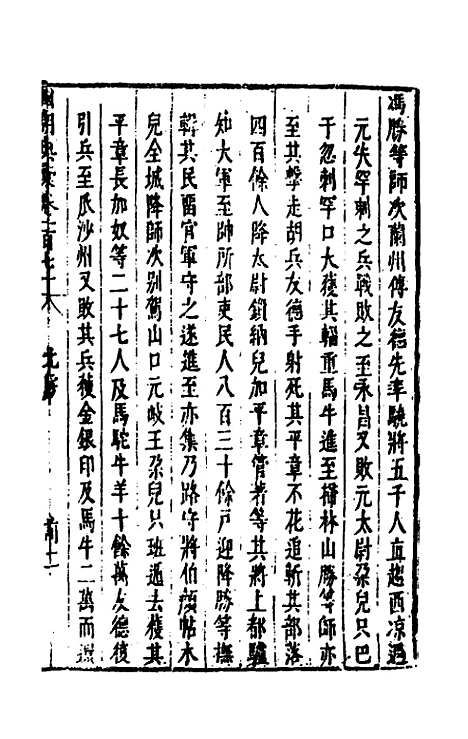 馮勝等師次蘭州傅友德先率驍將五千人直趨西凉遇
元失罕刺之兵戰敗之至永昌又敗元太尉朶兒只巴
于忽刺罕口大獲其輜重馬牛進至掃林山勝等師亦
至共擊走胡兵友德手射死其平章不花追斬其部落
四百餘人降太尉鎖納兒加平章管著等其將上都驢
知大軍至帥所部吏民人八百三十餘戶迎降勝等撫
輯其民留官軍守之遂進至亦集乃路守將伯顏帖木
兒全城降師次别駕山口元岐王朶兒只班遁去獲其
平章長加奴等二十七人及馬駝牛羊十餘萬友德復
引兵至瓜沙州又敗其兵獲金銀印及馬牛二萬而還
國朝典彙卷一百七十